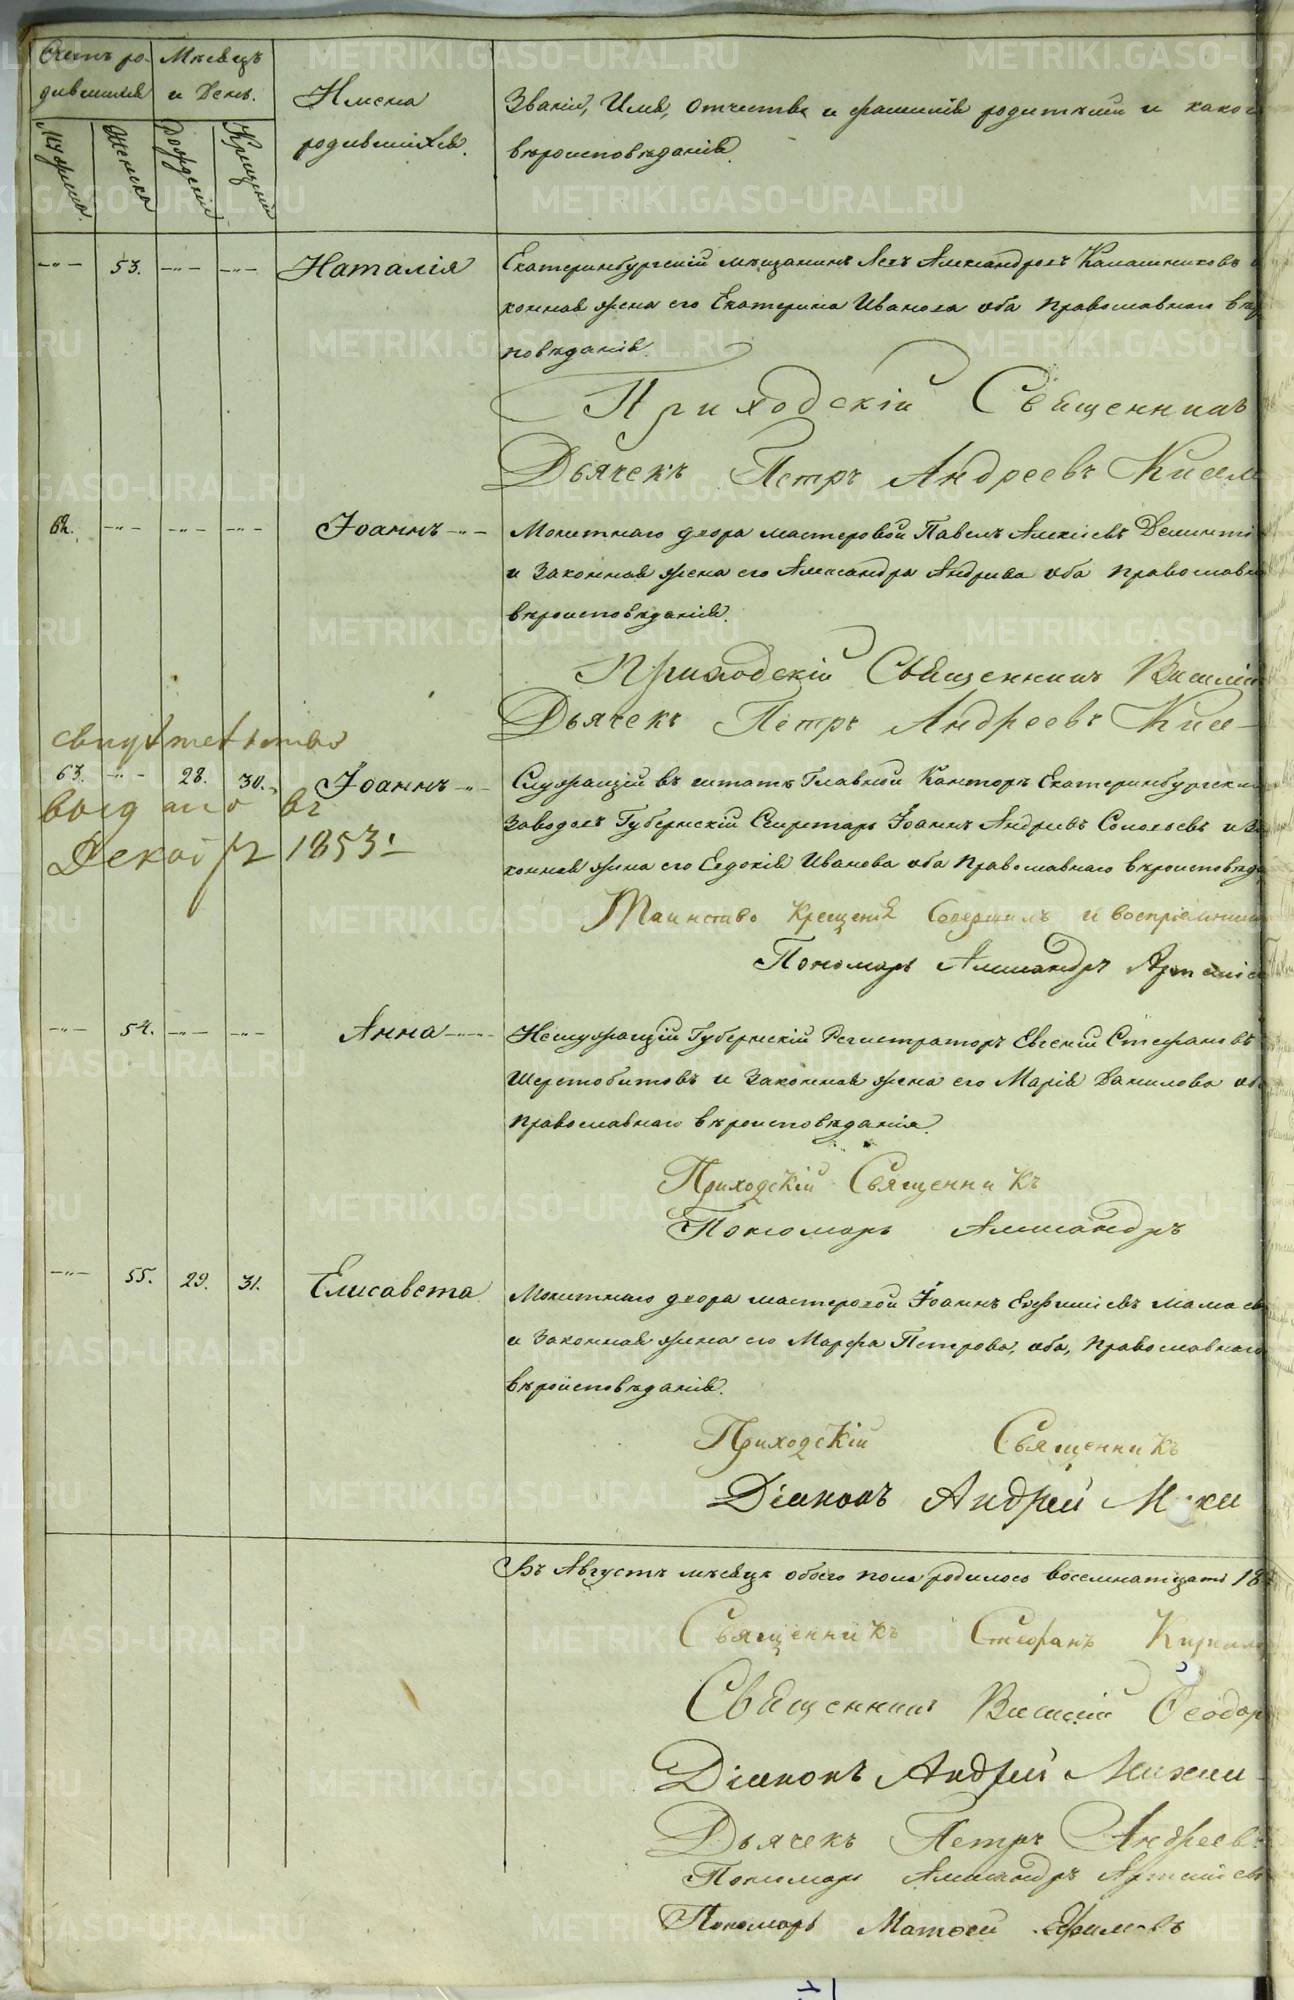 Счетъ ро- Мѣсяцъ
дившихся и День. Имена
Званіе, Имя, отчество и фамилія родителей и какого
родившихся.
вѣроисповѣданія.
Мужска. Женска Рожденія Крещенія
-"- 53. -"- -"- Наталія Екатеринбургскій мѣщанинъ Александровъ Калашниковъ
конная жена его Екатерина Иванова оба православнаго
повѣданія.
Приходскій Священникъ
Дьячекъ Петръ Андреевъ Кисел
62. -"- -"- -"- Іоаннъ -"- Монетнаго двора мастеровой Павелъ Алексіевъ
и Законная жена его Александра Андреева оба православна
вѣроисповѣданія.
Приходскій Священникъ Василій
Дьячекъ Петръ Андреевъ Кисе-
свидѣтельство
63. -"- 28. 30. Іоаннъ -"- Служащій въ штатѣ Главной Конторы Екатеринбургски
выдано въ
Заводовъ Губернскій Секретарь Іоаннъ Андреевъ Соловьевъ и За
Декабрѣ 1853:
конная жена его Евдокія Иванова оба Православнаго вѣроисповѣда
Таинство Крещенія Совершилъ и воспріемник
Пономарь Александръ Артеміе
-"- 54. -"- -"- Анна -"- Неслужащій Губернскій Регистраторъ Евгеній Стефановъ
Шерстобитовъ и Законная жена его Марія Данилова об
православнаго вѣроисповѣданія.
Приходскій Священникъ
Пономарь Александръ
-"- 55. 29. 31. Елисавета Монетнаго двора мастеровой Іоаннъ Евфиміевъ Мамаев
и Законная жена его Марфа Петрова, оба, Православнаго
вѣроисповѣданія.
Приходскій Священникъ
Діаконъ Андрей
Въ Августѣ мѣсяцѣ обоего пола родилось восемнатцать 18
Священникъ Стефанъ Кирилл
Священникъ Василій Ѳеодор
Діаконъ Андрей
Дьячекъ Петръ Андреевъ
Пономарь Александръ Артеміев
Пономарь Матѳей Ефимовъ
METRIKI.GASO-URAL.RU